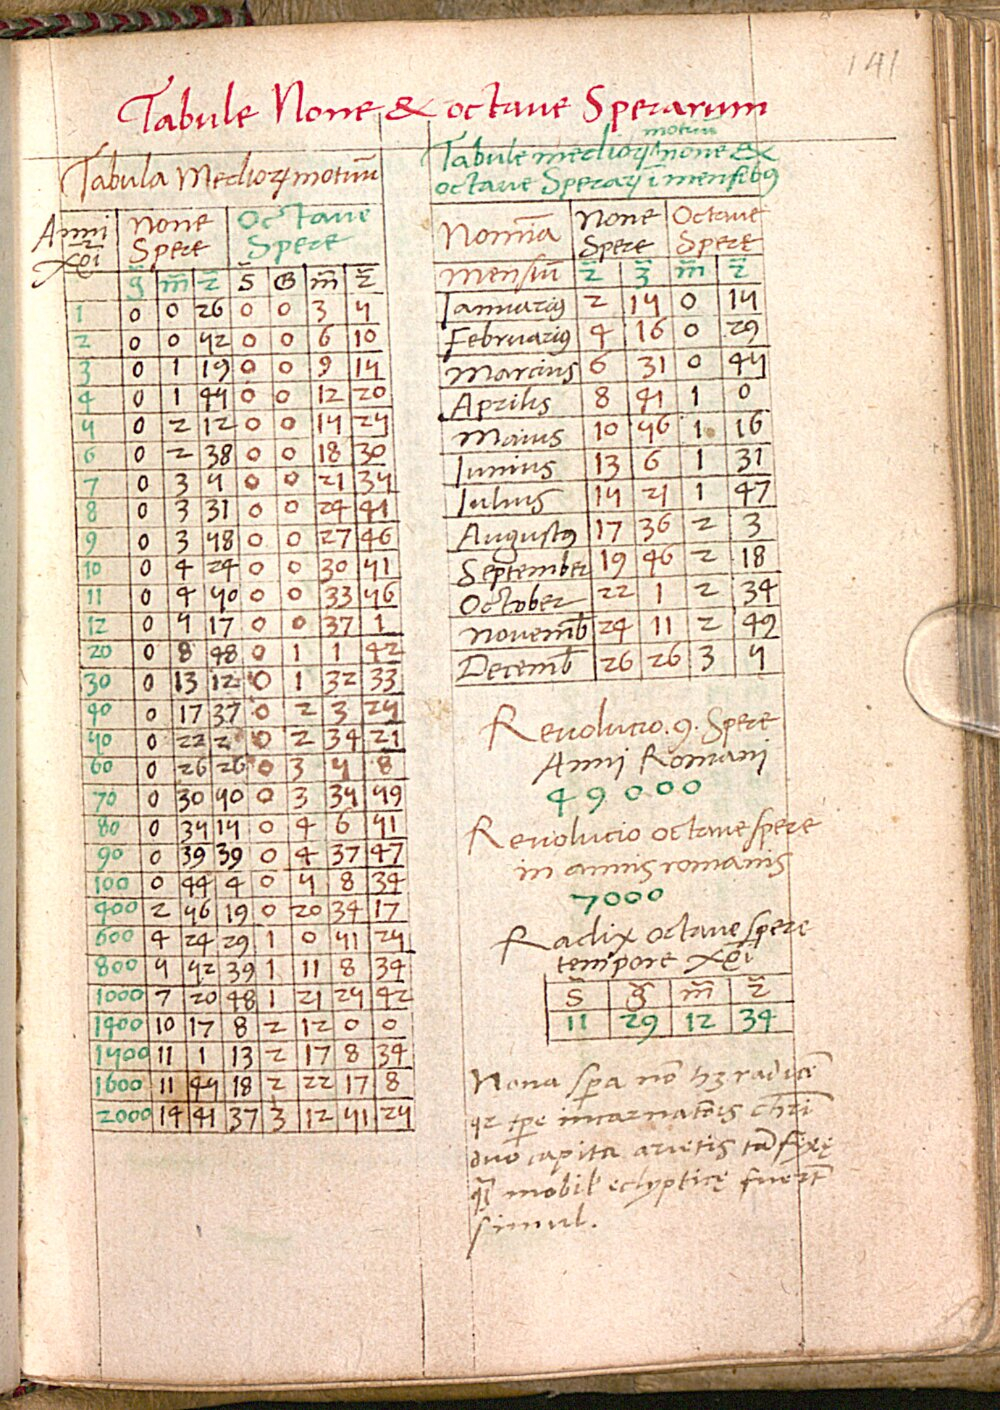 141
Tabule None & octaue Sperarum
Tabula Mediorꝝ motuū
Anni
xp̄i
None
Spere
Octaue
Spere
g̃ m̃ 2̃ S̃ G m̃ 2̃
1 0 0 26 0 0 3 5
2 0 0 52 0 0 6 10
3 0 1 19 0 0 9 15
4 0 1 45 0 0 12 20
5 0 2 12 0 0 15 25
6 0 2 38 0 0 18 30
7 0 3 5 0 0 21 35
8 0 3 31 0 0 24 41
9 0 3 58 0 0 27 46
10 0 4 24 0 0 30 51
11 0 4 50 0 0 33 56
12 0 5 17 0 0 37 1
20 0 8 48 0 1 1 42
30 0 13 12 0 1 32 33
40 0 17 37 0 2 3 25
50 0 22 2 0 2 34 21
60 0 26 26 0 3 5 8
70 0 30 50 0 3 35 59
80 0 35 15 0 4 6 51
90 0 39 39 0 4 37 47
100 0 44 4 0 5 8 34
400 2 56 19 0 20 34 17
600 4 24 29 1 0 51 25
800 5 52 39 1 11 8 34
1000 7 20 48 1 21 25 42
1400 10 17 8 2 12 0 0
1500 11 1 13 2 17 8 34
1600 11 45 18 2 22 17 8
2000 14 41 37 3 12 51 25
Tabule mediorꝝ motuū none &
octaue Sperarꝝ ī mensibꝰ
Nomīa
None
Spere
Octaue
Spere
mensiū 2̃ 3̃ m̃ 2̃
Ianuariꝰ 2 15 0 15
Februariꝰ 4 16 0 29
Marcius 6 31 0 45
Aprilis 8 41 1 0
Maius 10 56 1 16
Iunius 13 6 1 31
Iulius 15 21 1 47
Augustꝰ 17 36 2 3
September 19 46 2 18
October 22 1 2 34
Nouemb̄ 24 11 2 49
Decemb̄ 26 26 3 5
Reuolucio .9. Spere
Annj Romanj
49000
Reuolucio octaue spere
in annis romanis
7000
Radix octaue spere
tempore xp̄i
S̃ g̃ m̃ 2̃
11 29 12 34
Nona sp̄a nō hꝫ radicē
qr tp̄e incarnatōis chr̄i
duo capita arietis tā fixę
qͣ mobil' eclypticę fuerūt
simul.